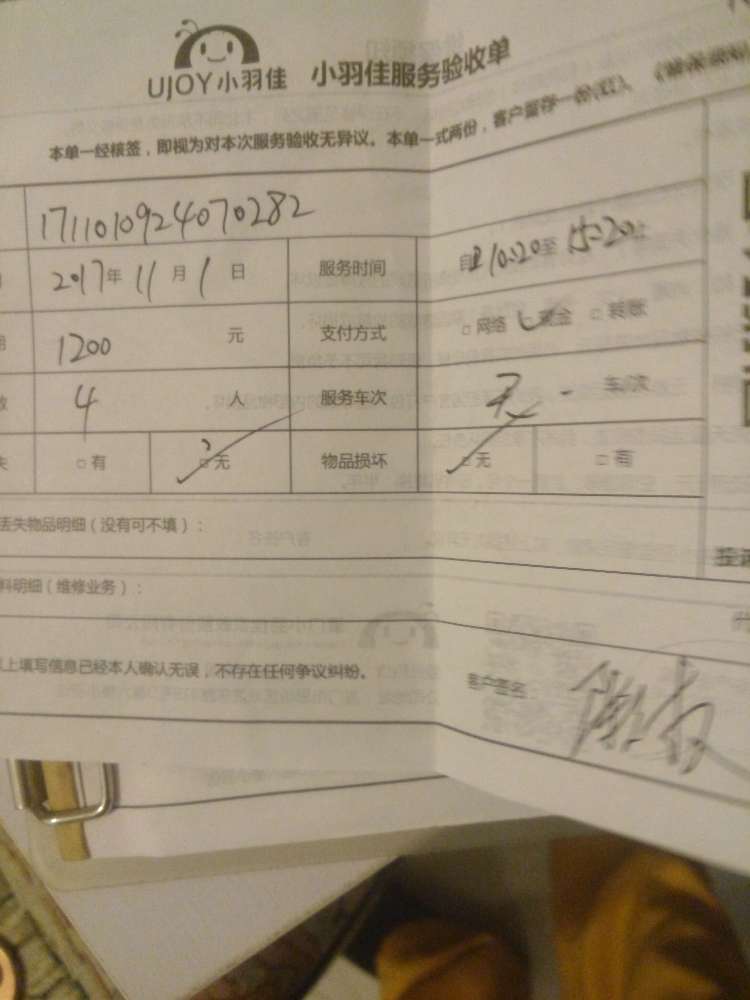 UJOY小羽佳 小羽佳服务验收单
本单一经核签，即视为对本次服务验收无异议。本单一式两份，客户留存一份
1711010924070282
2017年 11月 1日 服务时间 自 10:20至 15:20
1200 元 支付方式 □ 网络 □ 现金 □ 转账
4 人 服务车次 无 车/次
□ 有 □ 无 物品损坏 □ 无 □ 有
丢失物品明细（没有可不填）：
料明细（维修业务）：
上填写信息已经本人确认无误，不存在任何争议纠纷。
客户签名：